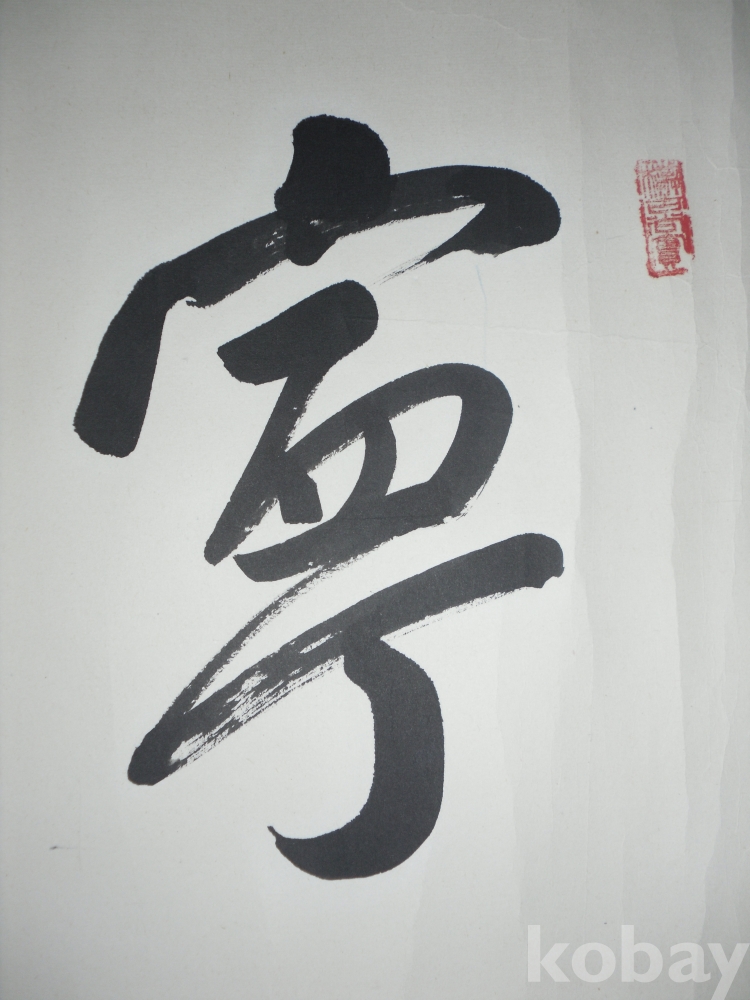 寧
kobay